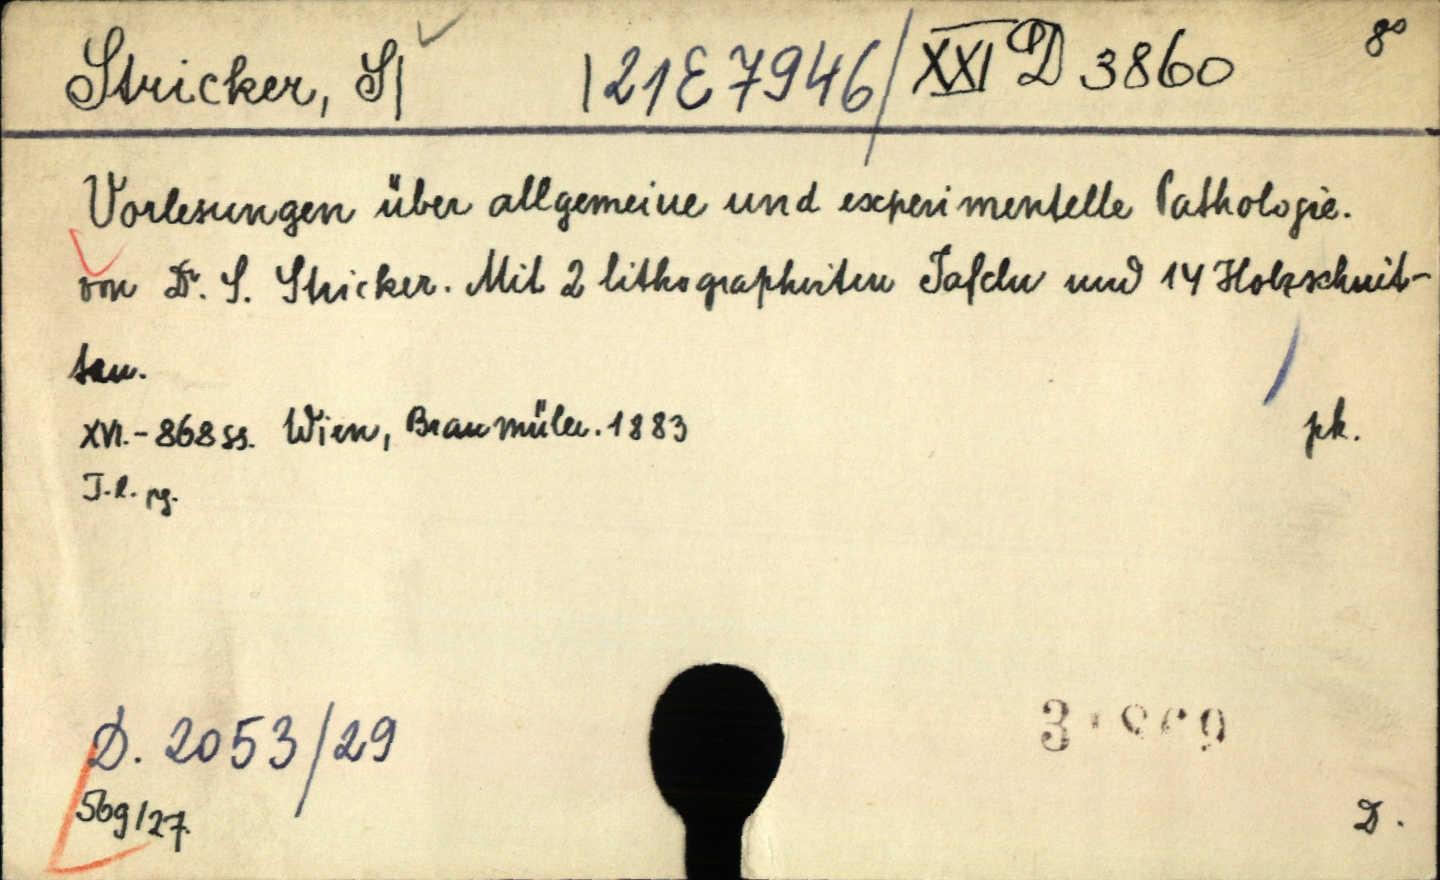 Stricker, S| |21E7946/ XXI D 3860 8°
Vorlesungen über allgemeine und experimentelle Pathologie.
von Dr. S. Stricker. Mit 2 lithographirten Tafeln und 14 Holzschnit-
ten.
XVI.-868 ss. Wien, Braumüller. 1883 pk.
T.l. rg.
D. 2053/29
569/27. D.